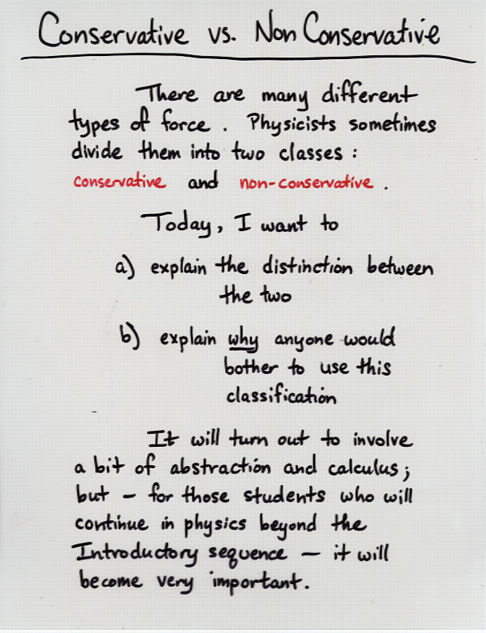 Conservative vs. Non Conservative
There are many different
types of force. Physicists sometimes
divide them into two classes:
conservative and non-conservative.
Today, I want to
a) explain the distinction between
the two
b) explain why anyone would
bother to use this
classification
It will turn out to involve
a bit of abstraction and calculus;
but - for those students who will
continue in physics beyond the
Introductory sequence - it will
become very important.